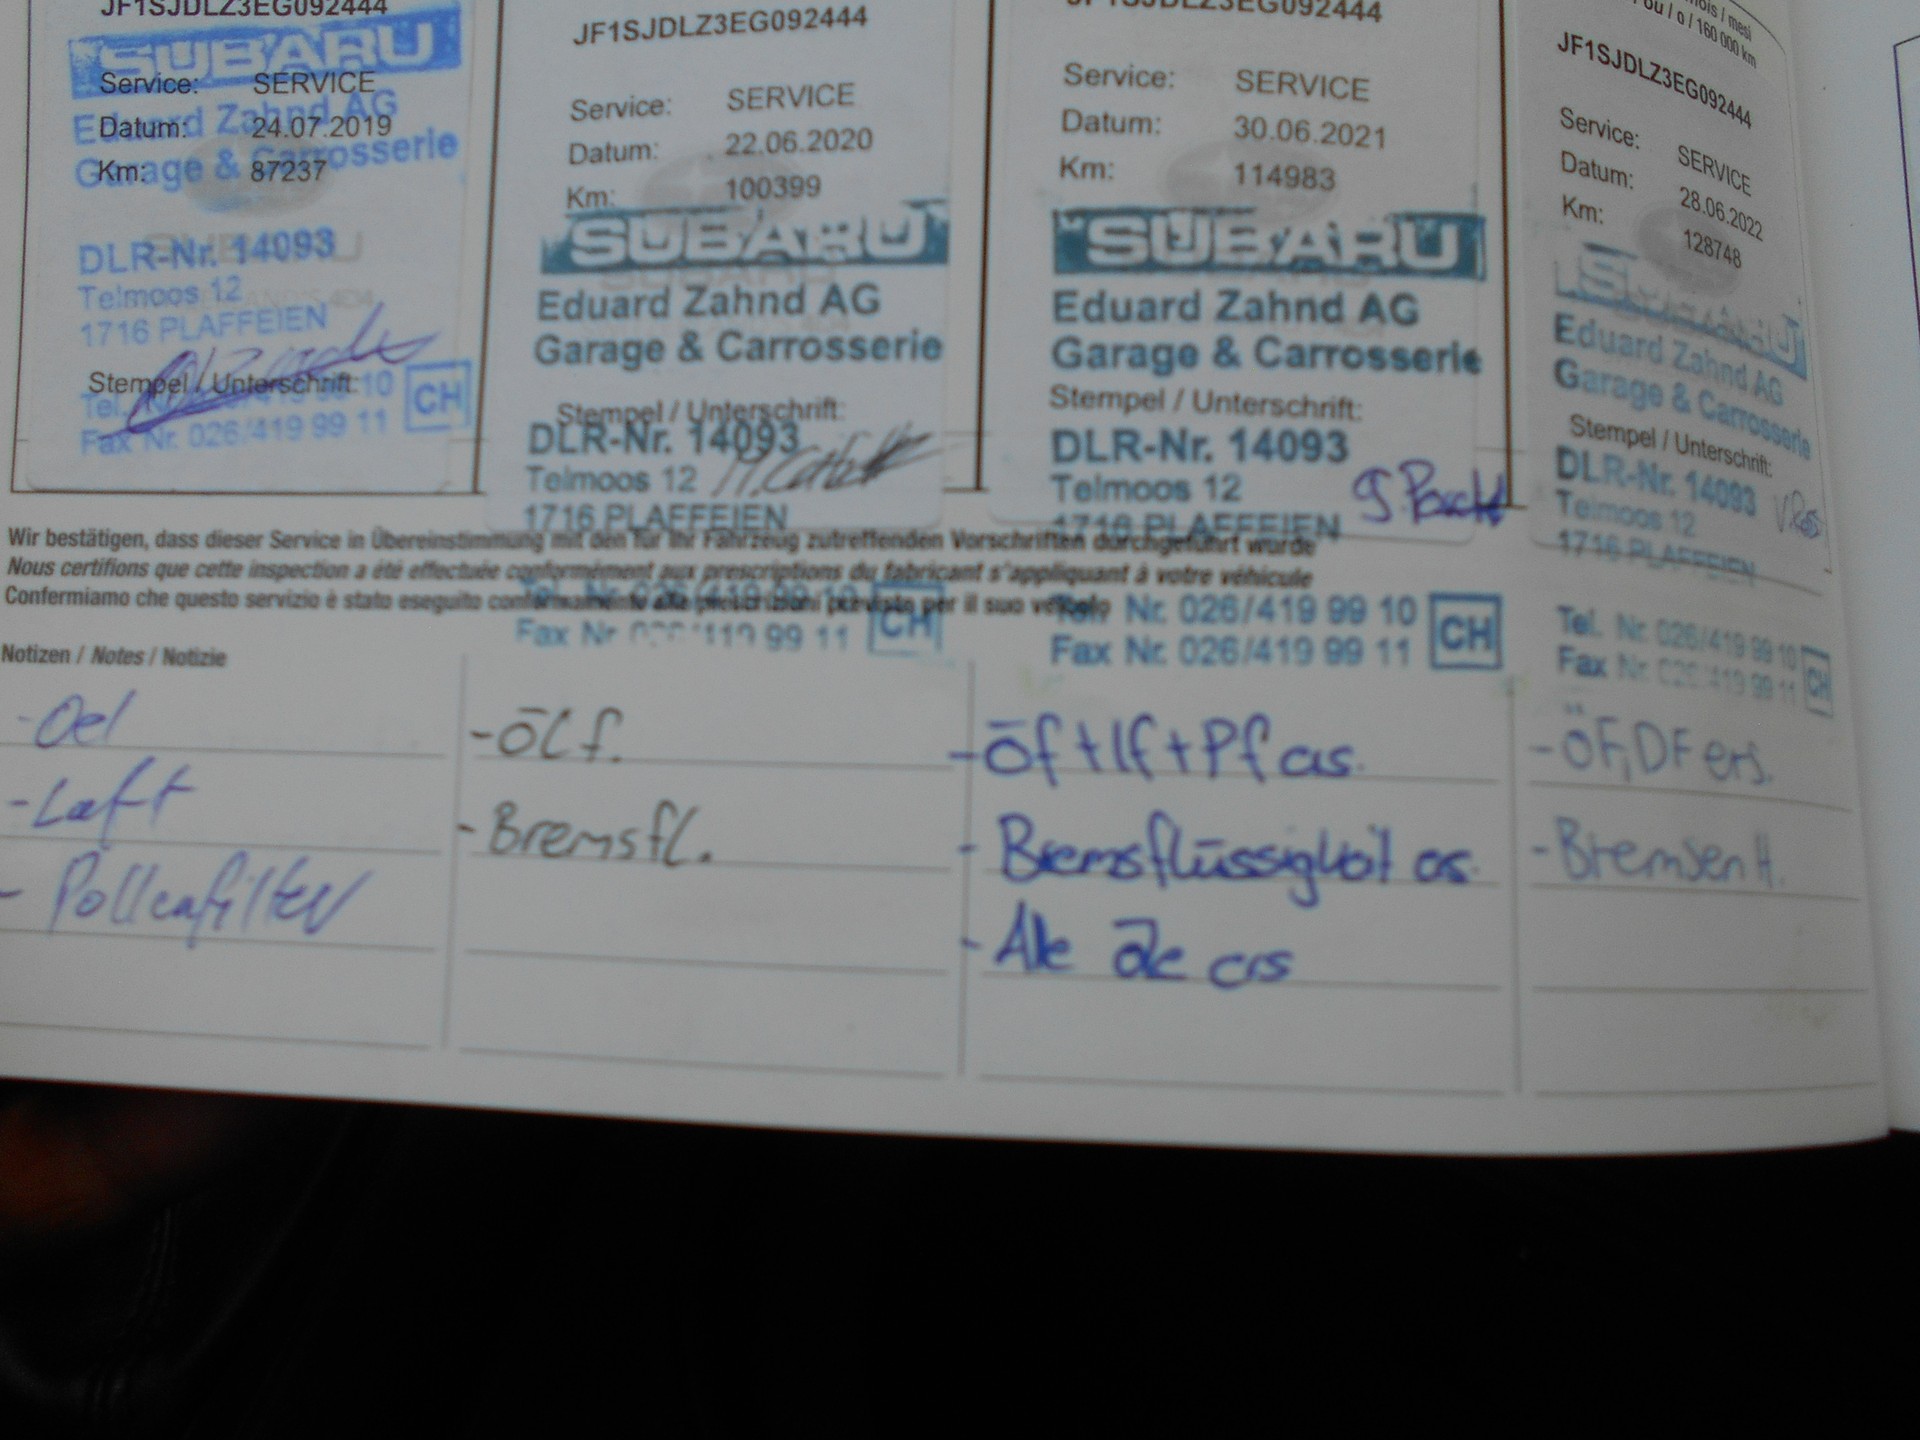 JF1SJDLZ3EG092444
SUBARU
Service: SERVICE
Eduard Zahnd AG
Datum: 24.07.2019
Garage & Carrosserie
Km: 87237
DLR-Nr. 14093
Telmoos 12
1716 PLAFFEIEN
Stempel / Unterschrift:
Tel. 10
CH
Fax Nr. 026/419 99 11
JF1SJDLZ3EG092444
Service: SERVICE
Datum: 22.06.2020
Km: 100399
SUBARU
Eduard Zahnd AG
Garage & Carrosserie
Stempel / Unterschrift:
DLR-Nr. 14093
Telmoos 12
1716 PLAFFEIEN
Tel. Nr. 026/419 99 10
Fax Nr 119 99 11
CH
JF1SJDLZ3EG092444
Service: SERVICE
Datum: 30.06.2021
Km: 114983
SUBARU
Eduard Zahnd AG
Garage & Carrosserie
Stempel / Unterschrift:
DLR-Nr. 14093
Telmoos 12
1716 PLAFFEIEN
Nr. 026/419 99 10
Fax Nr. 026/419 99 11
CH
/ mesi
ou / o / 160 000 km
JF1SJDLZ3EG092444
Service: SERVICE
Datum: 28.06.2022
Km: 128748
SUBARU
Eduard Zahnd AG
Garage & Carrosserie
Stempel / Unterschrift:
DLR-Nr. 14093
Telmoos 12
1716 PLAFFEIEN
Tel. Nr. 026/419 99 10
Fax Nr. 026/419 99 11
CH
Wir bestätigen, dass dieser Service in Übereinstimmung mit den für Ihr Fahrzeug zutreffenden Vorschriften durchgeführt wurde
Nous certifions que cette inspection a été effectuée conformément aux prescriptions du fabricant s'appliquant à votre véhicule
Confermiamo che questo servizio è stato eseguito conformemente alle prescrizioni previste per il suo veicolo
Notizen / Notes / Notizie
- Oel
- Luft
- Pollenfilter
- ÖLf.
- Bremsfl.
- Öf + lf + Pf
- Bremsflüssigkeit
- Alle
- ÖF, DF ers.
- Bremsen H.